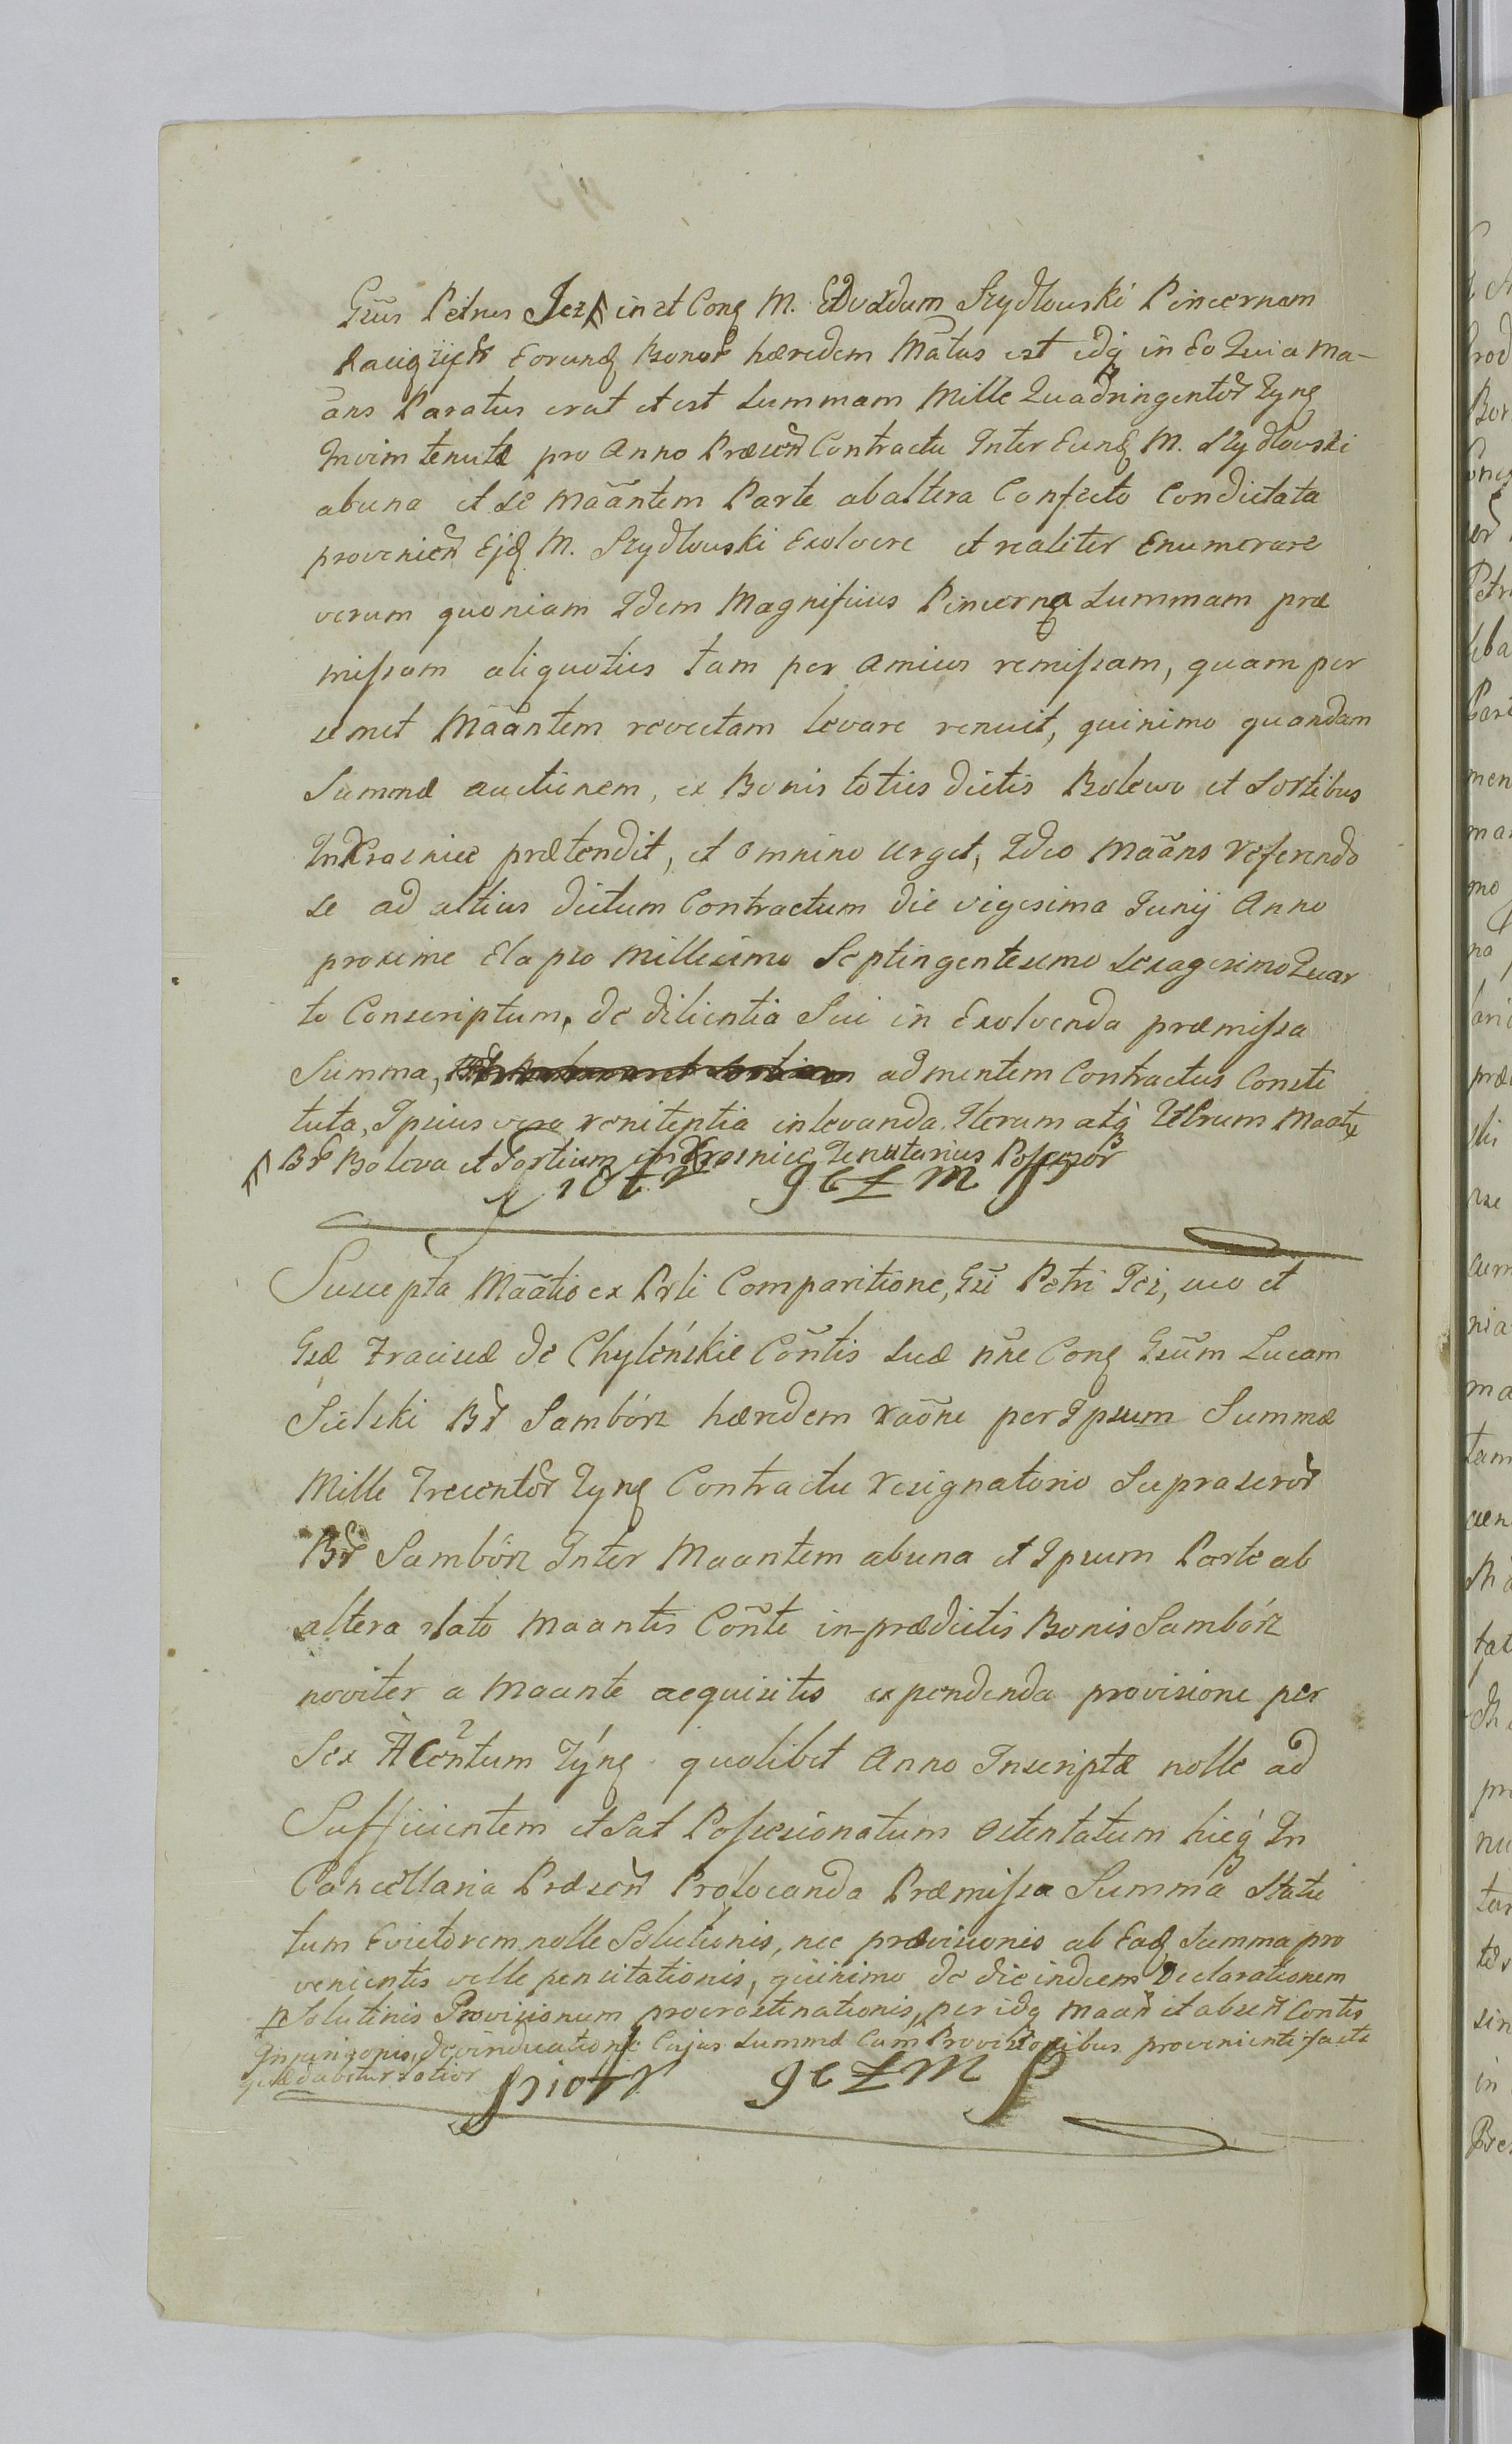 Gsus Petrus Jez in et Cong M. Edvardum Szydlowski Pincernam
Racigiên Eorunq Bonor hæredem Mãtus est idq in Eo Quia Ma-
ãns Paratus erat et est Summam Mille Quadringentor Tynf
Invim tenutæ pro Anno Præsen Contractu Inter Eunq M. Szydlowski
abuna et Se Maãntem Parte abaltera Confecto Condictata
provenien Ejq M. Szydlowski Exolvere et realiter Enumerare
verum quoniam Idem Magnificus Pincerna Summam præ
missam aliquoties tam per amicos remissam, quam per
semet Mããntem revectam levare renuit, quinimo quandam
Summæ auctionem, ex Bonis toties dictis Bolewo et Sortibus
InKrasnice prætendit, et omnino urget, Ideo Maãns referendo
se ad altius dictum Contractum die vigesima Junij Anno
proxime Elapso Millesimo Septingentesimo SexagesimoQuar
to Conscriptum, de dilientia Sui in Exolvenda præmissa
Summa, admentem Contractus Consti
tuta, Ipsius vero renitentia inlevanda. Iterum atq Iterum Maatz
Br Boleva et Sortium in Krasnice Tenutarius Possessor
Piotr JeŁM
Suscepta Mãatio ex Prti Comparitione, Gsi Petri Jez, suo et
Gsæ Fraciscæ de Chyleńskie Cõntis Suæ nñe Cong Gsũm Lucam
Sielski Br Sambórz hæredem raõne per Ipsum Summæ
Mille Trecentor Tynf Contractu resignatorio Suprascror
Br Sambórz Inter Maantem abuna et Ipsum Parte ab
altera stato Maantis Cõnte in prædictis Bonis Sambórz
noviter a Maante acquisitis expendenda provisione per
Sex A Centum Týnf quolibet Anno Inscriptæ nolle ad
Sufficientem et Sat Possessionatum ostentatum hicq In
Cancellaria Præsen Prolocanda Præmissa Summa Statu
tum Evictorem nolle Solutionis, nec provisionis ab Eaq Summa pro
venientis velle pensitationis, quinimo de die indiem Declarationem
Solutinis Provisionum procrastinationis, per idq Maan et absen Contis
devinducatione Cujus Summæ Cum Provisionibus provenienti facta
quæ dabitur latior
Piotr JeŁM